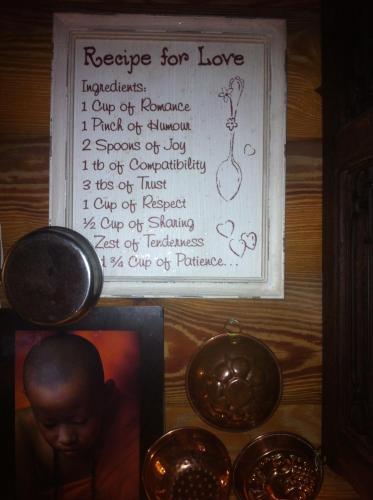 Recipe for Love
Ingredients:
1 Cup of Romance
1 Pinch of Humour
2 Spoons of Joy
1 tb of Compatibility
3 tbs of Trust
1 Cup of Respect
½ Cup of Sharing
Zest of Tenderness
¾ Cup of Patience...